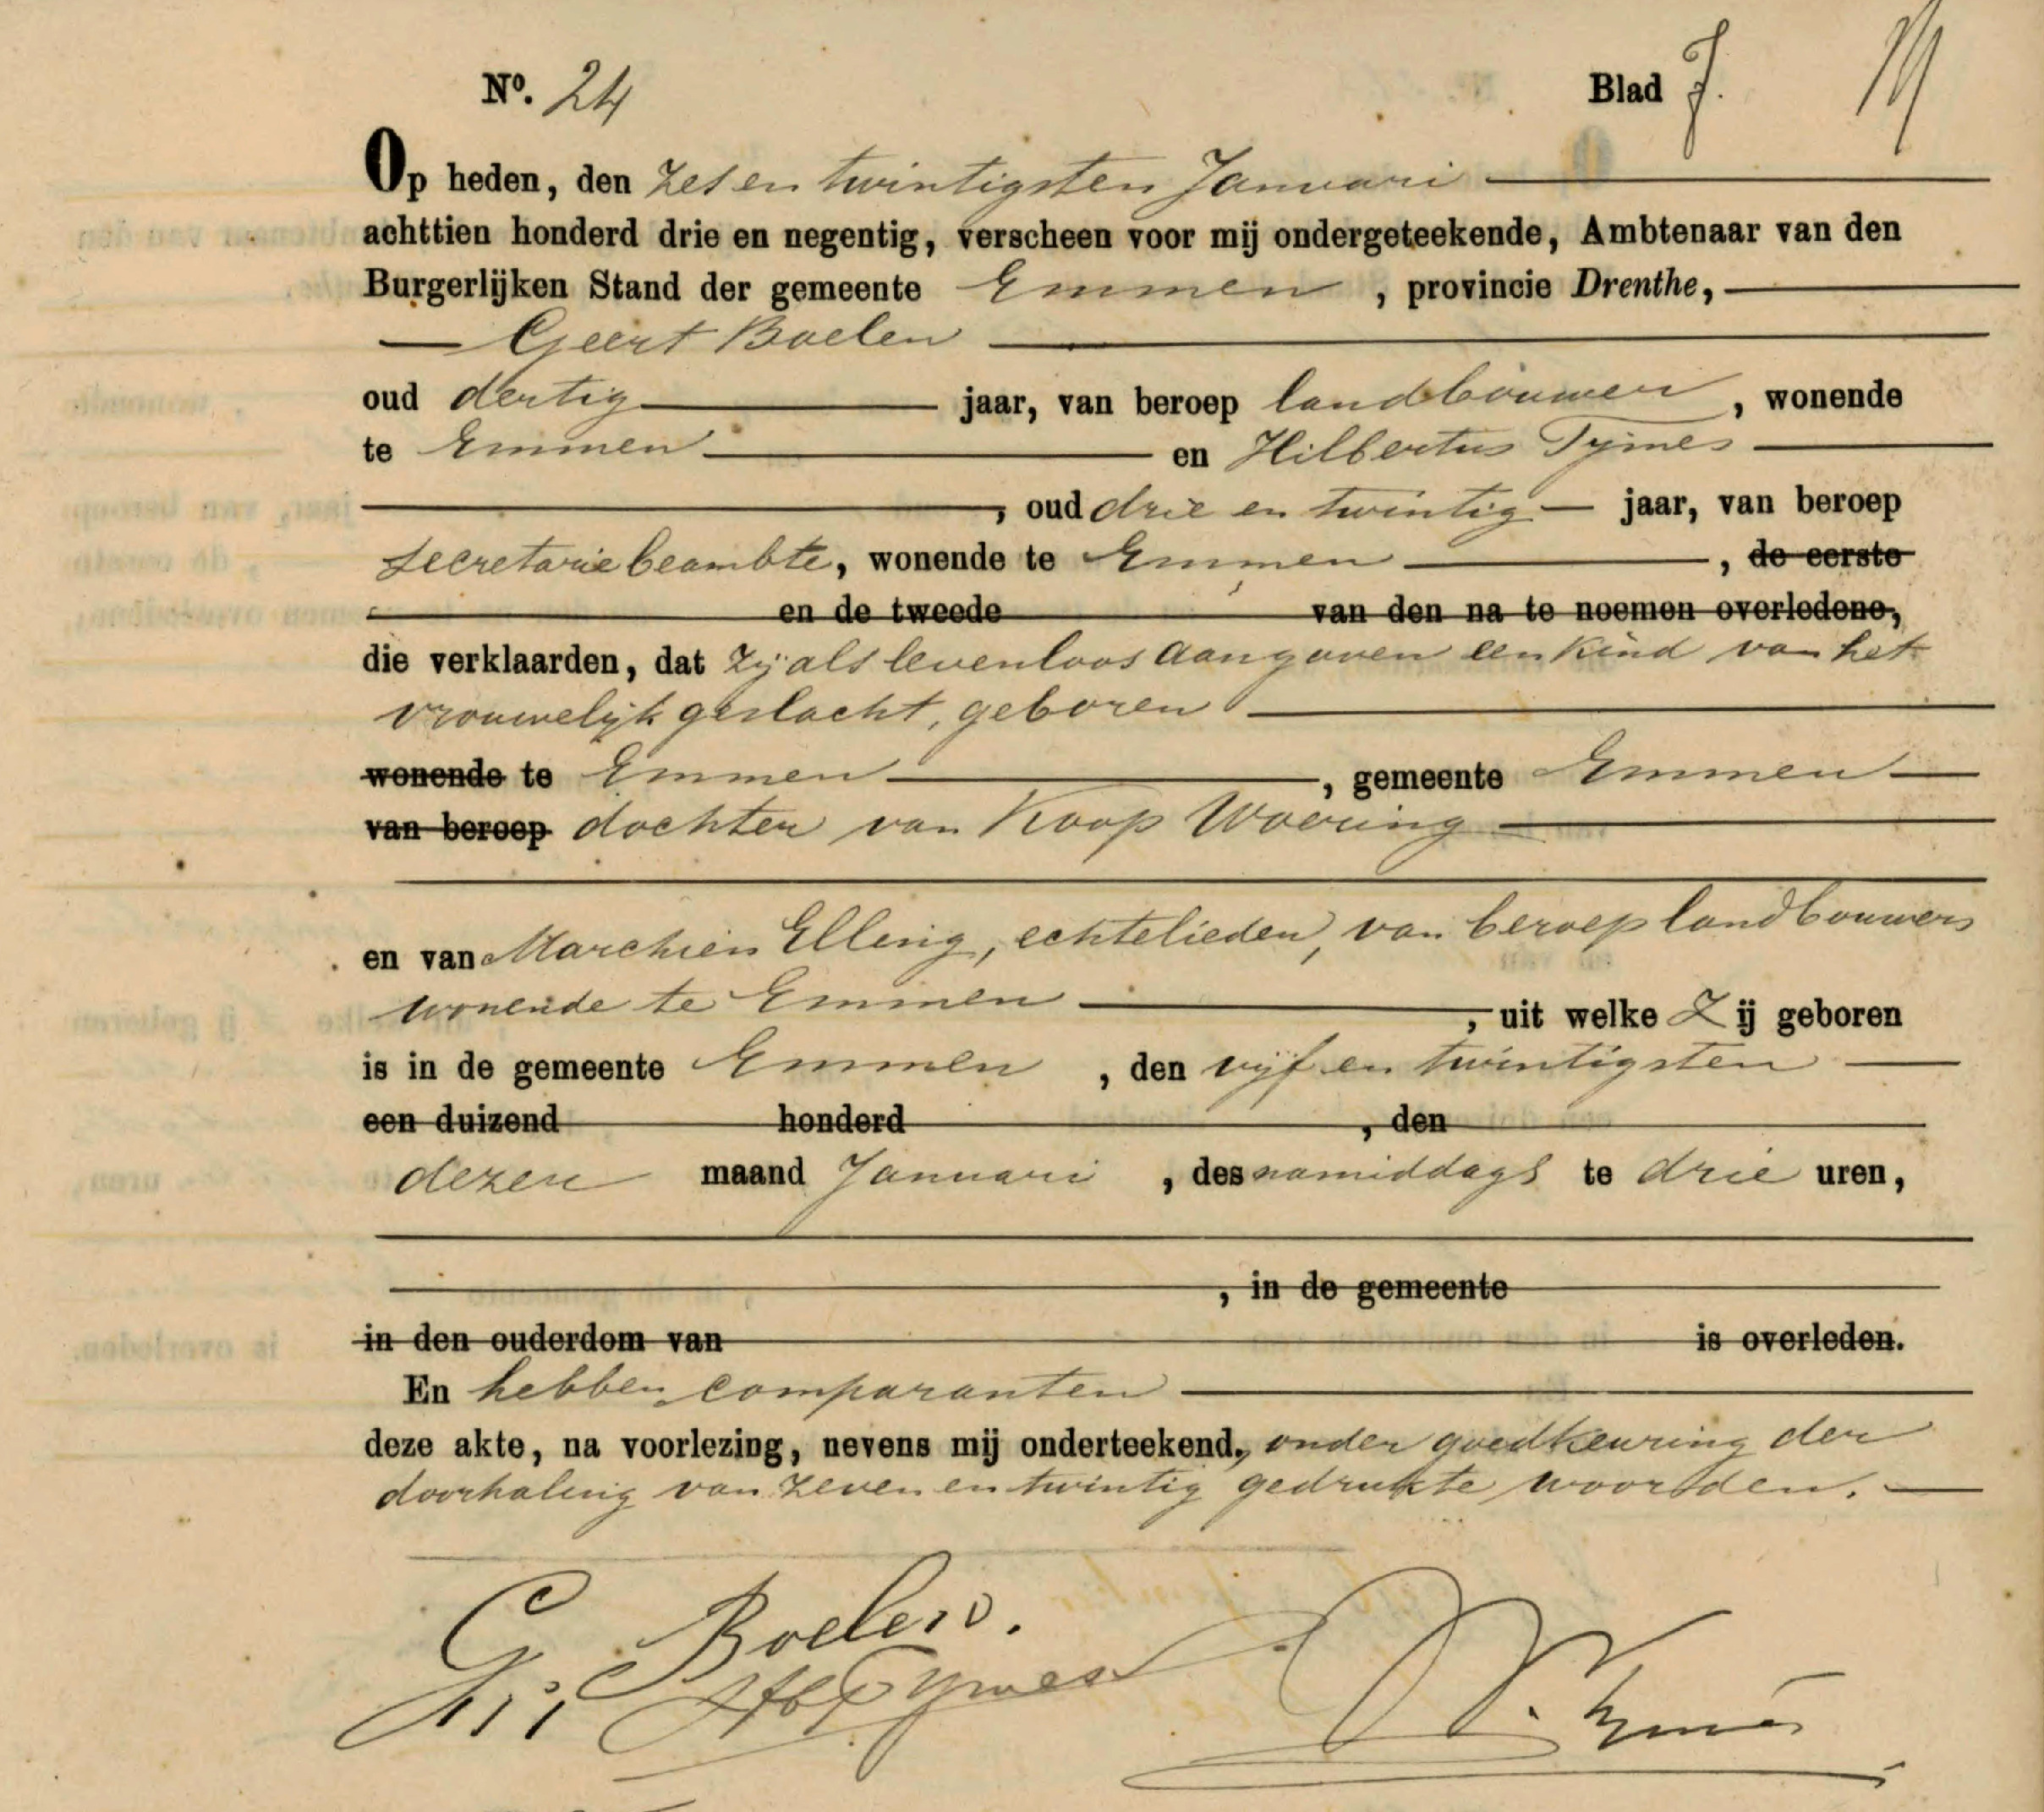 Nº. 24 Blad 7.
Op heden, den zes en twintigsten Januari
achttien honderd drie en negentig, verscheen voor mij ondergeteekende, Ambtenaar van den
Burgerlijken Stand der gemeente Emmen, provincie Drenthe,
Geert Boelen
oud dertig jaar, van beroep landbouwer, wonende
te Emmen en Hilbertus Tymes
, oud drie en twintig jaar, van beroep
secretariebeambte, wonende te Emmen, de eerste
en de tweede van den na te noemen overledene,
die verklaarden, dat zij als levenloos aangaven een kind van het
vrouwelijk geslacht, geboren
wonende te Emmen, gemeente Emmen
van beroep dochter van Koop Woering
en van Marchien Elling, echtelieden, van beroep landbouwers
wonende te Emmen, uit welke Zij geboren
is in de gemeente Emmen, den vijf en twintigsten
een duizend honderd , den
dezer maand Januari, des namiddags te drie uren,
, in de gemeente
in den ouderdom van is overleden.
En hebben comparanten
deze akte, na voorlezing, nevens mij onderteekend, onder goedkeuring der
doorhaling van zeven en twintig gedrukte woorden.
G Boelen.
Tymes